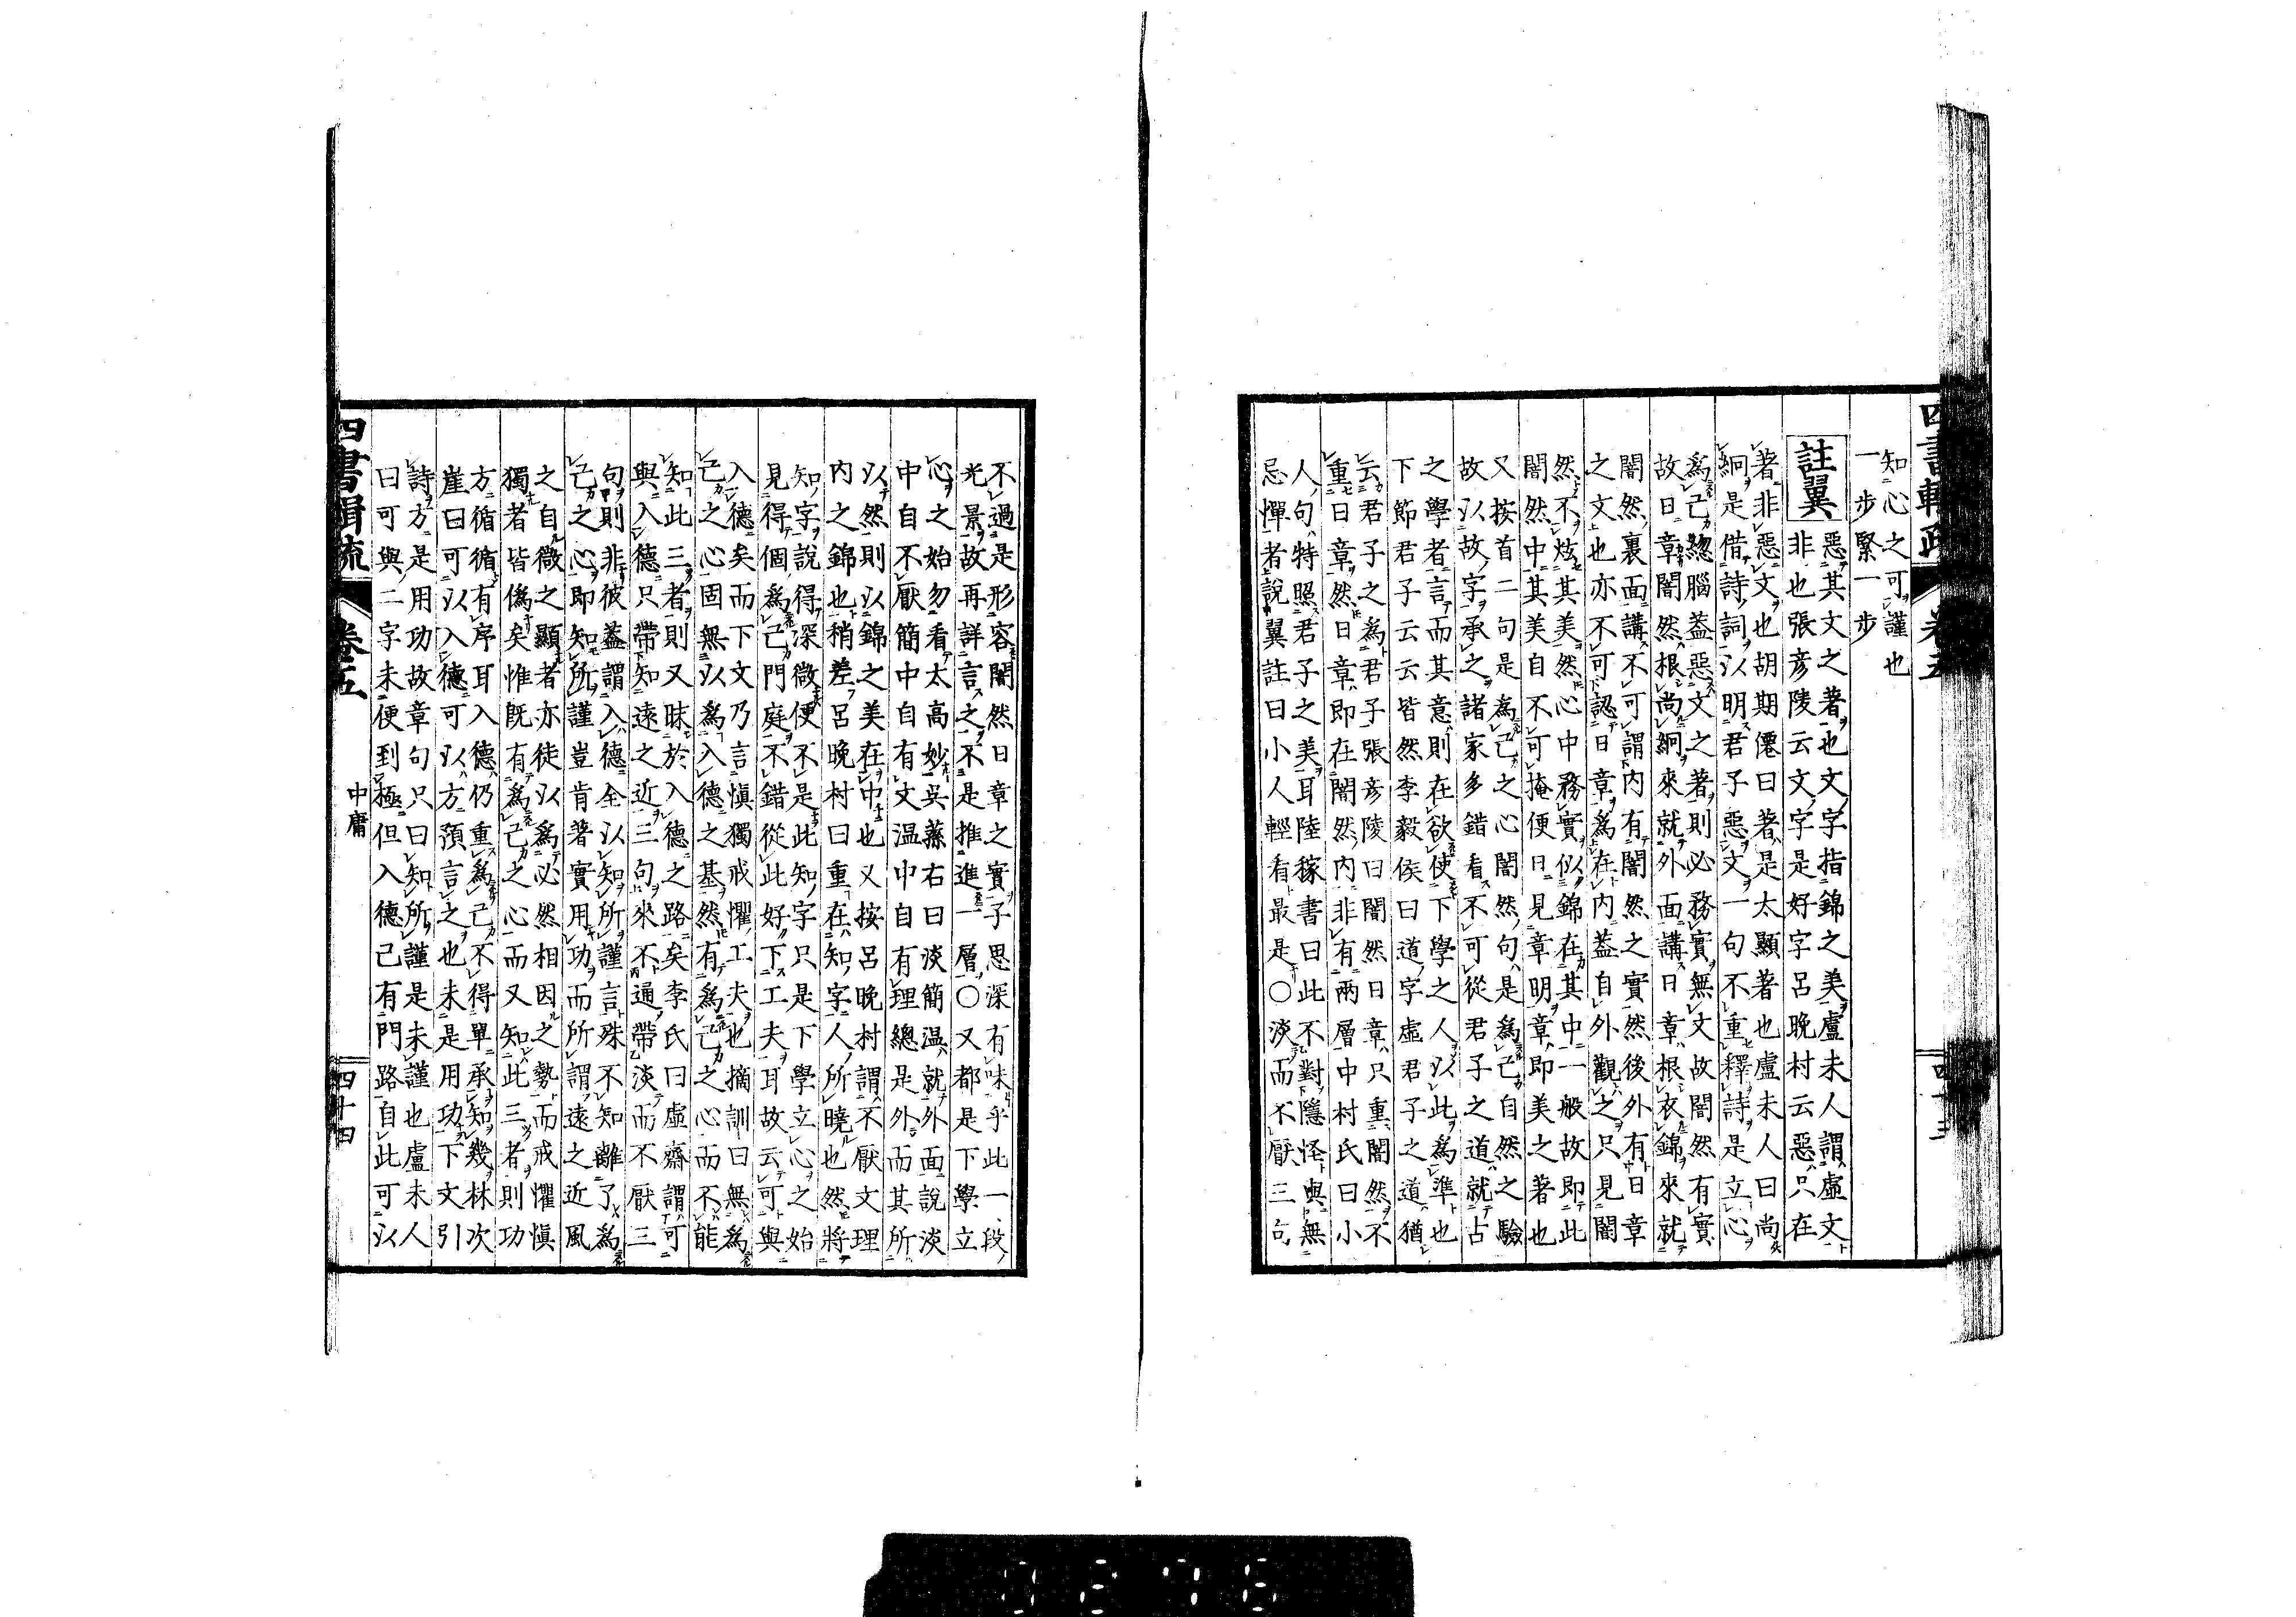 四書輯疏
卷五
知心之可謹也
一步緊一步
註翼
惡其文之著也文字指錦之美盧未人謂虛文
非也張彥陵云文字是好字呂晩村云惡只在
著非惡文也胡期僊曰著是太顯著也盧未人曰尚
絅是借詩詞以明君子惡文一句不重釋詩是立心
爲己緫腦蓋惡文之著則必務實無文故闇然有實
故日章闇然根尚絅來就外面講日章根衣錦來就
闇然裏面講不可謂內有闇然之實然後外有日章
之文也亦不可認日章爲在內蓋自外觀之只見闇
然不炫其美然心中務實似錦在其中一般故即此
闇然中其美自不可掩便日見章明章即美之著也
又按首二句是爲己之心闇然句是爲己自然之驗
故以故字承之諸家多錯看不可從君子之道就占
之學者言而其意則在欲使下學之人以此爲準也
下節君子云云皆然李毅侯曰道字虛君子之道猶
云君子之爲君子張彥陵曰闇然日章只重闇然不
重日章然日章即在闇然內非有兩層中村氏曰小
人句特照君子之美耳陸稼書曰此不對隱怪與無
忌憚者說翼註曰小人輕看最是〇淡而不厭三句
不過是形容闇然日章之實子思深有味乎此一段
光景故再詳言之不是推進一層〇又都是下學立
心之始勿看太高妙吳蓀右曰淡簡温就外面說淡
中自不厭簡中自有文温中自有理總是外而其所
以然則以錦之美在中也又按呂晩村謂不厭文理
內之錦也稍差呂晩村曰重在知字人所曉也然將
知字說得深微便不是此知字只是下學立心之始
見得個爲己門庭不錯從此好下工夫耳故云可與
入德矣而下文乃言愼獨戒懼工夫也摘訓曰無爲
己之心固無以爲入德之基然有爲己之心而不能
知此三者則又昧於入德之路矣李氏曰虛齋謂可
與入德只帶知遠之近三句來不通帶淡而不厭三
句則非彼蓋謂入德全以知所謹言殊不知離了爲
己之心即知所謹豈肯著實用功而所謂遠之近風
之自微之顯者亦徒以爲必然相因之勢而戒懼愼
獨者皆僞矣惟既有爲己之心而又知此三者則功
方循循有序耳入德仍重爲己不得單承知幾林次
崖曰可以入德可以方預言之也未是用功下文引
詩方是用功故章句只曰知所謹是未謹也盧未人
曰可與二字未便到極但入德已有門路自此可以
四書輯疏
卷五
中庸
四十四